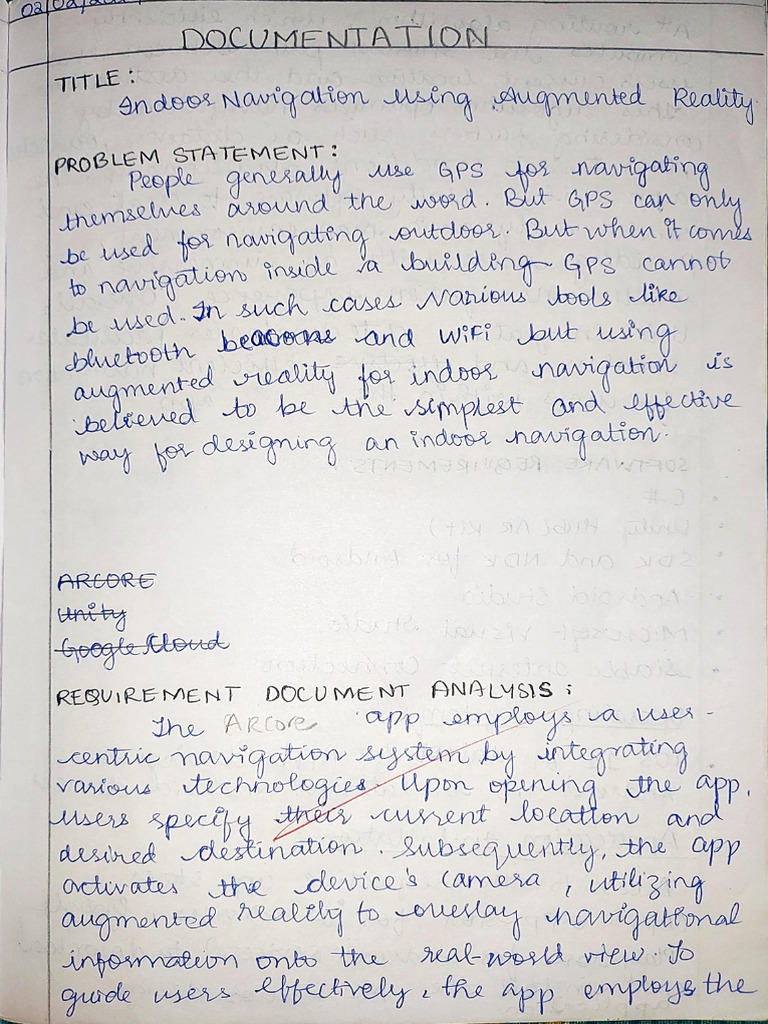 02/02/2
DOCUMENTATION
TITLE:
Indoor Navigation using Augmented Reality
PROBLEM STATEMENT:
People generally use GPS for navigating
themselves around the word. But GPS can only
be used for navigating outdoor. But when it comes
to navigation inside a building GPS cannot
be used. In such cases various tools like
bluetooth beacons and WiFi but using
augmented reality for indoor navigation is
believed to be the simplest and effective
way for designing an indoor navigation.
ARCORE
Unity
Google Cloud
REQUIREMENT DOCUMENT ANALYSIS:
The ARCore app employs a user-
centric navigation system by integrating
various technologies. Upon opening the app,
users specify their current location and
desired destination. Subsequently, the app
activates the device's camera, utilizing
augmented reality to overlay navigational
information onto the real-world view. To
guide users effectively, the app employs the